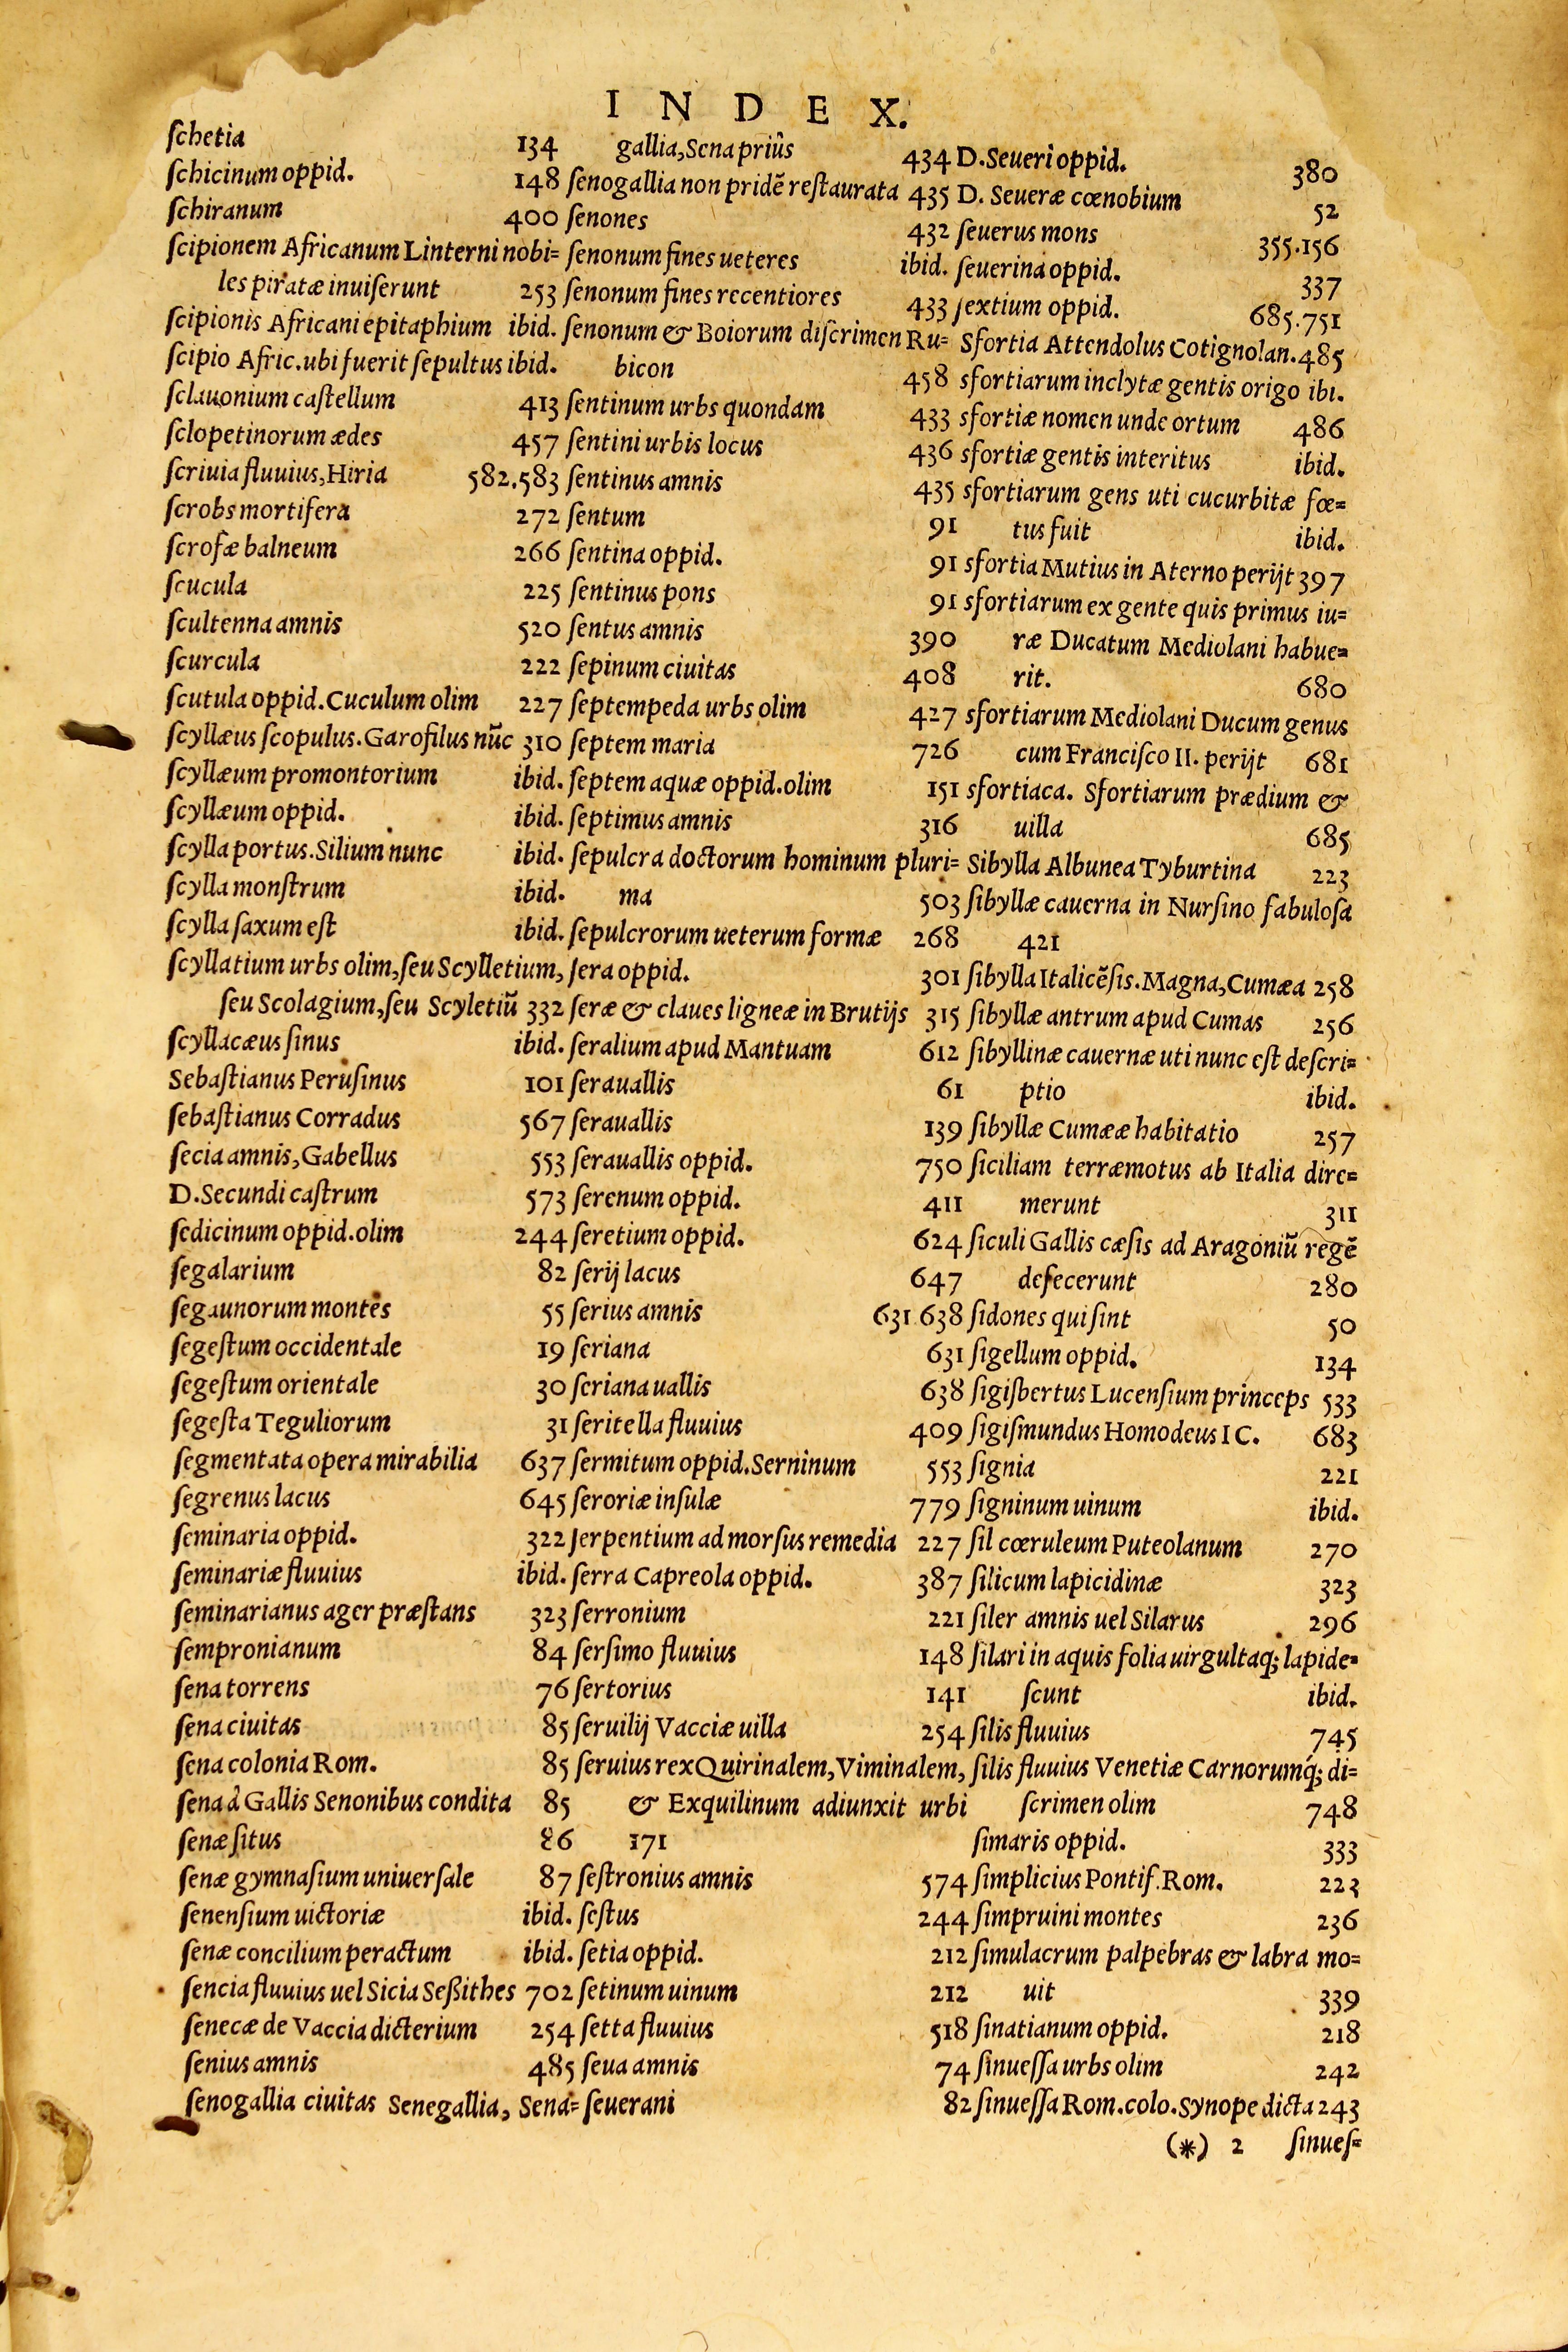 INDEX.
ſchetia 134
ſchicinum oppid. 148
ſchiranum 400
ſcipionem Africanum Linterni nobi=
les piratæ inuiſerunt 253
ſcipionis Africani epitaphium ibid.
ſcipio Afric. ubi fuerit ſepultus ibid.
ſclauonium caſtellum 413
ſclopetinorum ædes 457
ſcriuia fluuius, Hiria 582.583
ſcrobs mortifera 272
ſcrofæ balneum 266
ſcucula 225
ſcultenna amnis 520
ſcurcula 222
ſcutula oppid. Cuculum olim 227
ſcyllæus ſcopulus. Garofilus nūc 310
ſcyllæum promontorium ibid.
ſcyllæum oppid. ibid.
ſcylla portus. Silium nunc ibid.
ſcylla monſtrum ibid.
ſcylla ſaxum eſt ibid.
ſcyllatium urbs olim, ſeu Scylletium,
ſeu Scolagium, ſeu Scyletiū 332
ſcyllacæus ſinus ibid.
Sebaſtianus Peruſinus 101
ſebaſtianus Corradus 567
ſecia amnis, Gabellus 553
D. Secundi caſtrum 573
ſedicinum oppid. olim 244
ſegalarium 82
ſegaunorum montes 55
ſegeſtum occidentale 19
ſegeſtum orientale 30
ſegeſta Teguliorum 31
ſegmentata opera mirabilia 637
ſegrenus lacus 645
ſeminaria oppid. 322
ſeminariæ fluuius ibid.
ſeminarianus ager præſtans 323
ſempronianum 84
ſena torrens 76
ſena ciuitas 85
ſena colonia Rom. 85
ſena à Gallis Senonibus condita 85
ſenæ ſitus 86
ſenæ gymnaſium uniuerſale 87
ſenenſium uictoriæ ibid.
ſenæ concilium peractum ibid.
ſencia fluuius uel Sicia Seßithes 702
ſenecæ de Vaccia dicterium 254
ſenius amnis 485
ſenogallia ciuitas Senegallia, Sena=
gallia, Sena priùs 434
ſenogallia non pridē reſtaurata 435
ſenones 432
ſenonum fines ueteres ibid.
ſenonum fines recentiores 433
ſenonum & Boiorum diſcrimen Ru=
bicon 458
ſentinum urbs quondam 433
ſentini urbis locus 436
ſentinus amnis 435
ſentum 91
ſentina oppid. 91
ſentinus pons 91
ſentus amnis 390
ſepinum ciuitas 408
ſeptempeda urbs olim 427
ſeptem maria 726
ſeptem aquæ oppid. olim 151
ſeptimus amnis 316
ſepulcra doctorum hominum pluri=
ma 503
ſepulcrorum ueterum formæ 268
ſera oppid. 301
ſeræ & claues ligneæ in Brutijs 315
ſeralium apud Mantuam 612
ſerauallis 61
ſerauallis 139
ſerauallis oppid. 750
ſerenum oppid. 411
ſeretium oppid. 624
ſerij lacus 647
ſerius amnis 631.638
ſeriana 631
ſeriana uallis 638
ſeritella fluuius 409
ſermitum oppid. Serninum 553
ſeroriæ inſulæ 779
ſerpentium ad morſus remedia 227
ſerra Capreola oppid. 387
ſerronium 221
ſerſimo fluuius 148
ſertorius 141
ſeruilij Vacciæ uilla 254
ſeruius rex Quirinalem, Viminalem,
& Exquilinum adiunxit urbi
171
ſeſtronius amnis 574
ſeſtus 244
ſetia oppid. 212
ſetinum uinum 212
ſetta fluuius 518
ſeua amnis 74
ſeuerani 82
D. Seueri oppid. 380
D. Seueræ cœnobium 52
ſeuerus mons 355.156
ſeuerina oppid. 337
ſextium oppid. 685.751
Sfortia Attendolus Cotignolan. 485
sfortiarum inclytæ gentis origo ibi.
sfortiæ nomen unde ortum 486
sfortiæ gentis interitus ibid.
sfortiarum gens uti cucurbitæ fœ=
tus fuit ibid.
sfortia Mutius in Aterno perijt 397
sfortiarum ex gente quis primus iu=
ræ Ducatum Mediolani habue=
rit. 680
sfortiarum Mediolani Ducum genus
cum Franciſco II. perijt 681
sfortiaca. Sfortiarum prædium &
uilla 685
Sibylla Albunea Tyburtina 223
ſibyllæ cauerna in Nurſino fabuloſa
421
ſibylla Italicēſis. Magna, Cumæa 258
ſibyllæ antrum apud Cumas 256
ſibyllinæ cauernæ uti nunc eſt deſcri=
ptio ibid.
ſibyllæ Cumææ habitatio 257
ſiciliam terræmotus ab Italia dire=
merunt 311
ſiculi Gallis cæſis ad Aragoniū regē
defecerunt 280
ſidones qui ſint 50
ſigellum oppid. 134
ſigiſbertus Lucenſium princeps 533
ſigiſmundus Homodeus I C. 683
ſignia 221
ſigninum uinum ibid.
ſil cœruleum Puteolanum 270
ſilicum lapicidinæ 323
ſiler amnis uel Silarus 296
ſilari in aquis folia uirgultaq; lapide=
ſcunt ibid.
ſilis fluuius 745
ſilis fluuius Venetiæ Carnorumq́; di=
ſcrimen olim 748
ſimaris oppid. 333
ſimplicius Pontif. Rom. 223
ſimpruini montes 236
ſimulacrum palpebras & labra mo=
uit 339
ſinatianum oppid. 218
ſinueſſa urbs olim 242
ſinueſſa Rom. colo. Synope dicta 243
(*) 2 ſinueſ=